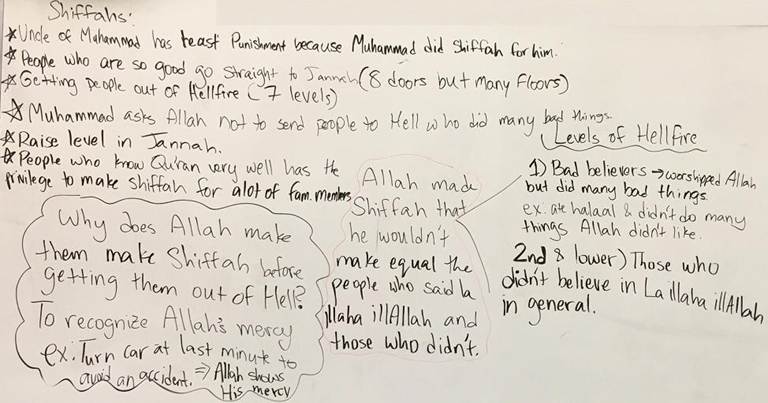 Shiffahs:
*Uncle of Muhammad has least Punishment because Muhammad did Shiffah for him.
*People who are so good go straight to Jannah (8 doors but many Floors)
*Getting people out of Hellfire (7 levels)
*Muhammad asks Allah not to send people to Hell who did many bad things.
*Raise level in Jannah.
*People who know Qu'ran very well has the
privilege to make shiffah for alot of fam. members
Why does Allah make
them make Shiffah before
getting them out of Hell?
To recognize Allah's mercy
ex: Turn car at last minute to
avoid an accident. ⇒ Allah shows
His mercy
Allah made
Shiffah that
he wouldn't
make equal the
people who said la
illaha illAllah and
those who didn't.
Levels of Hellfire
1) Bad believers → worshipped Allah
but did many bad things.
ex. ate halaal & didn't do many
things Allah didn't like.
2nd & lower) Those who
didn't believe in La illaha illAllah
in general.